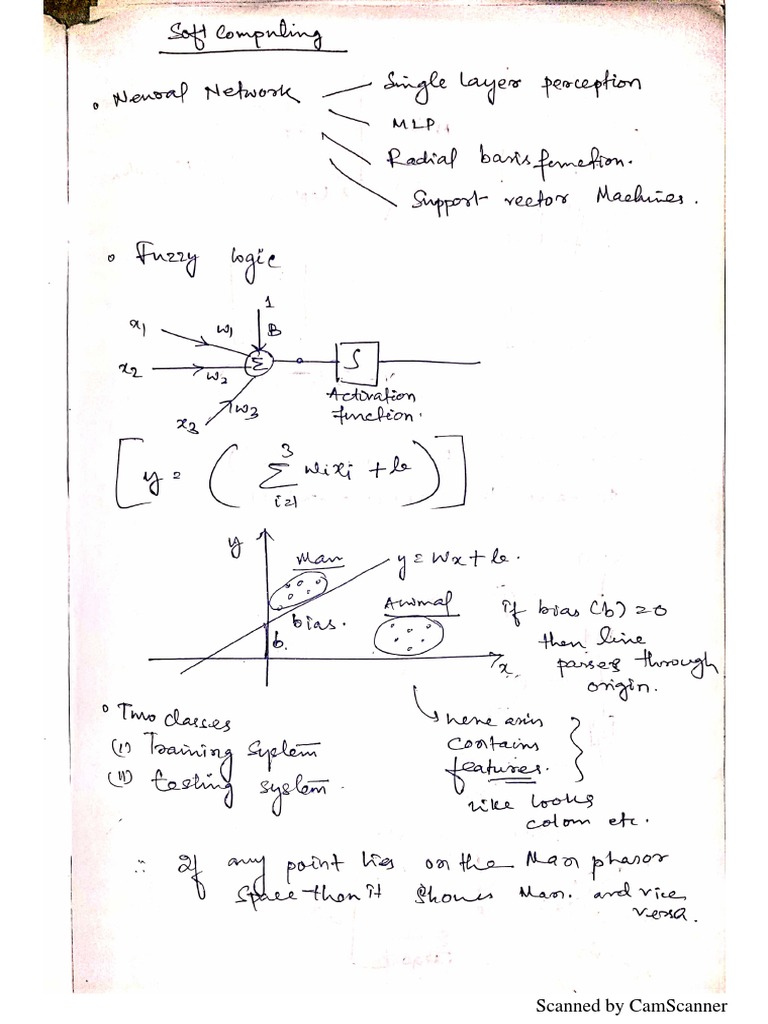 Soft Computing
• Neural Network
Single layer perception
MLP
Radial basis function.
Support vector Machines.
• Fuzzy logic
1
x1 w1 B
Σ S
x2 w2
x3 w3
Activation
function.
[y = ( Σ wixi + b )]
3
i=1
y
Man
y = wx + b.
Animal
bias.
b.
x
if bias (b) = 0
then line
passes through
origin.
• Two classes
(i) Training system
(ii) testing system.
here axis
contains
features.
like looks
colour etc.
∴ If any point lies on the Man phasor
space then it shows Man. and vice
versa.
Scanned by CamScanner